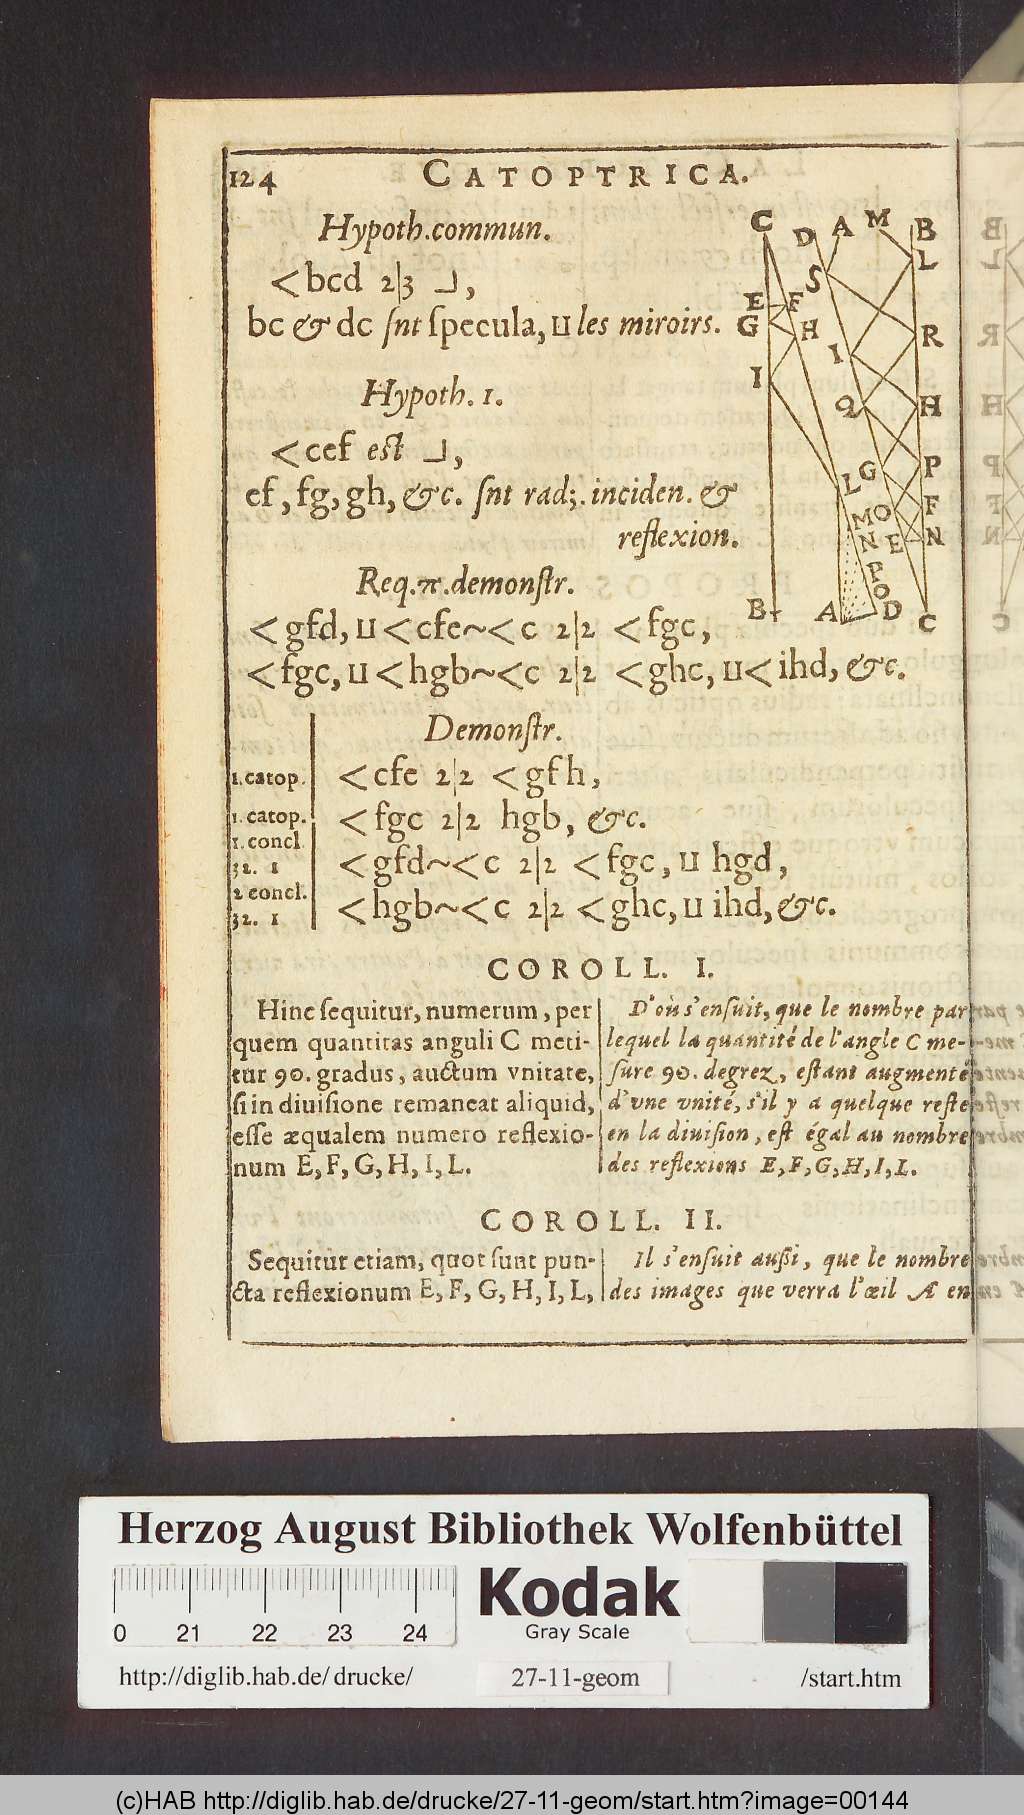 124 CATOPTRICA.
Hypoth. commun.
<bcd 2|3 ⅃,
bc & dc ſnt ſpecula, ⊔ les miroirs.
Hypoth. 1.
<cef eſt ⅃,
ef, fg, gh, &c. ſnt rad;. inciden. &
reflexion.
Req. π. demonſtr.
<gfd, ⊔ <cfe ~ <c 2|2 <fgc,
<fgc, ⊔ <hgb ~ <c 2|2 <ghc, ⊔ <ihd, &c.
C D A M B
L
S
E E
G H R
I I
Q H
L G P
M O F
N E N
P
O
B A D C
Demonſtr.
1. catop. <cfe 2|2 <gfh,
1. catop. <fgc 2|2 hgb, &c.
1. concl.
32. 1 <gfd ~ <c 2|2 <fgc, ⊔ hgd,
2 concl.
32. 1 <hgb ~ <c 2|2 <ghc, ⊔ ihd, &c.
COROLL. I.
Hinc ſequitur, numerum, per
quem quantitas anguli C meti-
tur 90. gradus, auctum vnitate,
ſi in diuiſione remaneat aliquid,
eſſe æqualem numero reflexio-
num E, F, G, H, I, L.
D'où s'enſuit, que le nombre par
lequel la quantité de l'angle C me-
ſure 90. degrez, eſtant augmenté
d'vne vnité, s'il y a quelque reſte
en la diuiſion, eſt égal au nombre
des reflexions E, F, G, H, I, L.
COROLL. II.
Sequitur etiam, quot ſunt pun-
cta reflexionum E, F, G, H, I, L,
Il s'enſuit auſſi, que le nombre
des images que verra l'œil A en
Herzog August Bibliothek Wolfenbüttel
0 21 22 23 24
Kodak
Gray Scale
http://diglib.hab.de/drucke/ 27-11-geom /start.htm
(c)HAB http://diglib.hab.de/drucke/27-11-geom/start.htm?image=00144